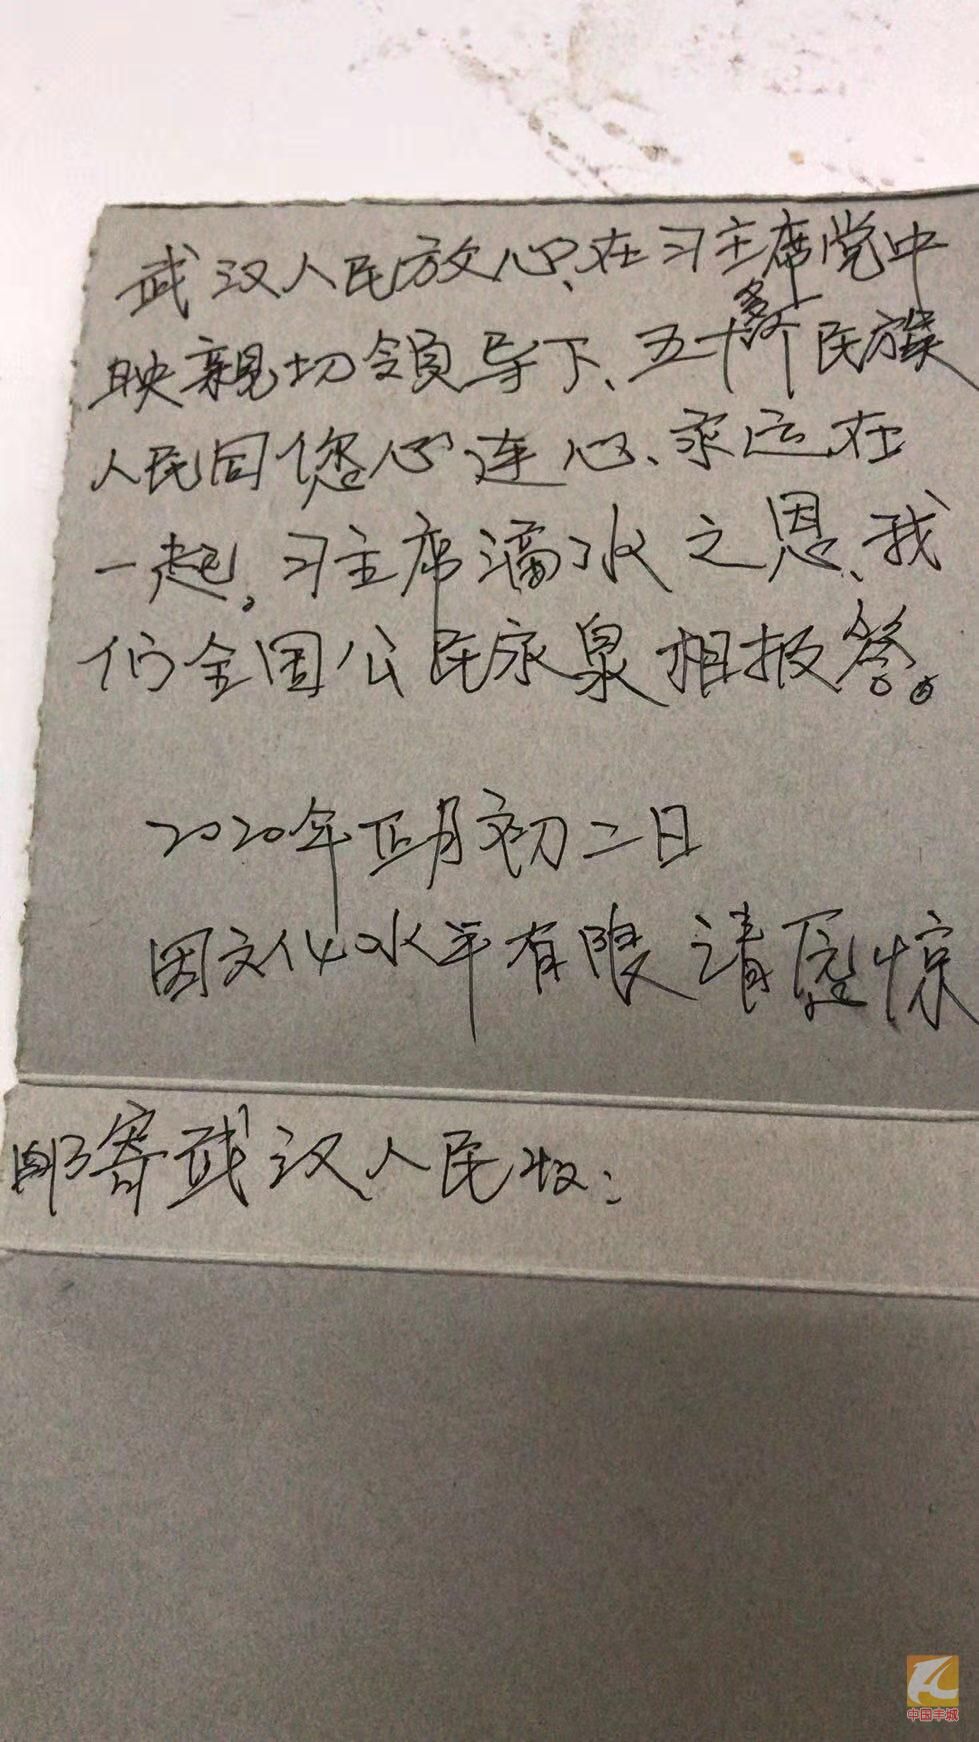 武汉人民放心、在习主席党中
映親切領导下、五十多个民族
人民同您心连心、永远在
一起，习主席滴水之恩、我
们全国公民永泉相报答。
2020年正月初二日
因文化水平有限请原惊
邮寄武汉人民收：
中国丰城